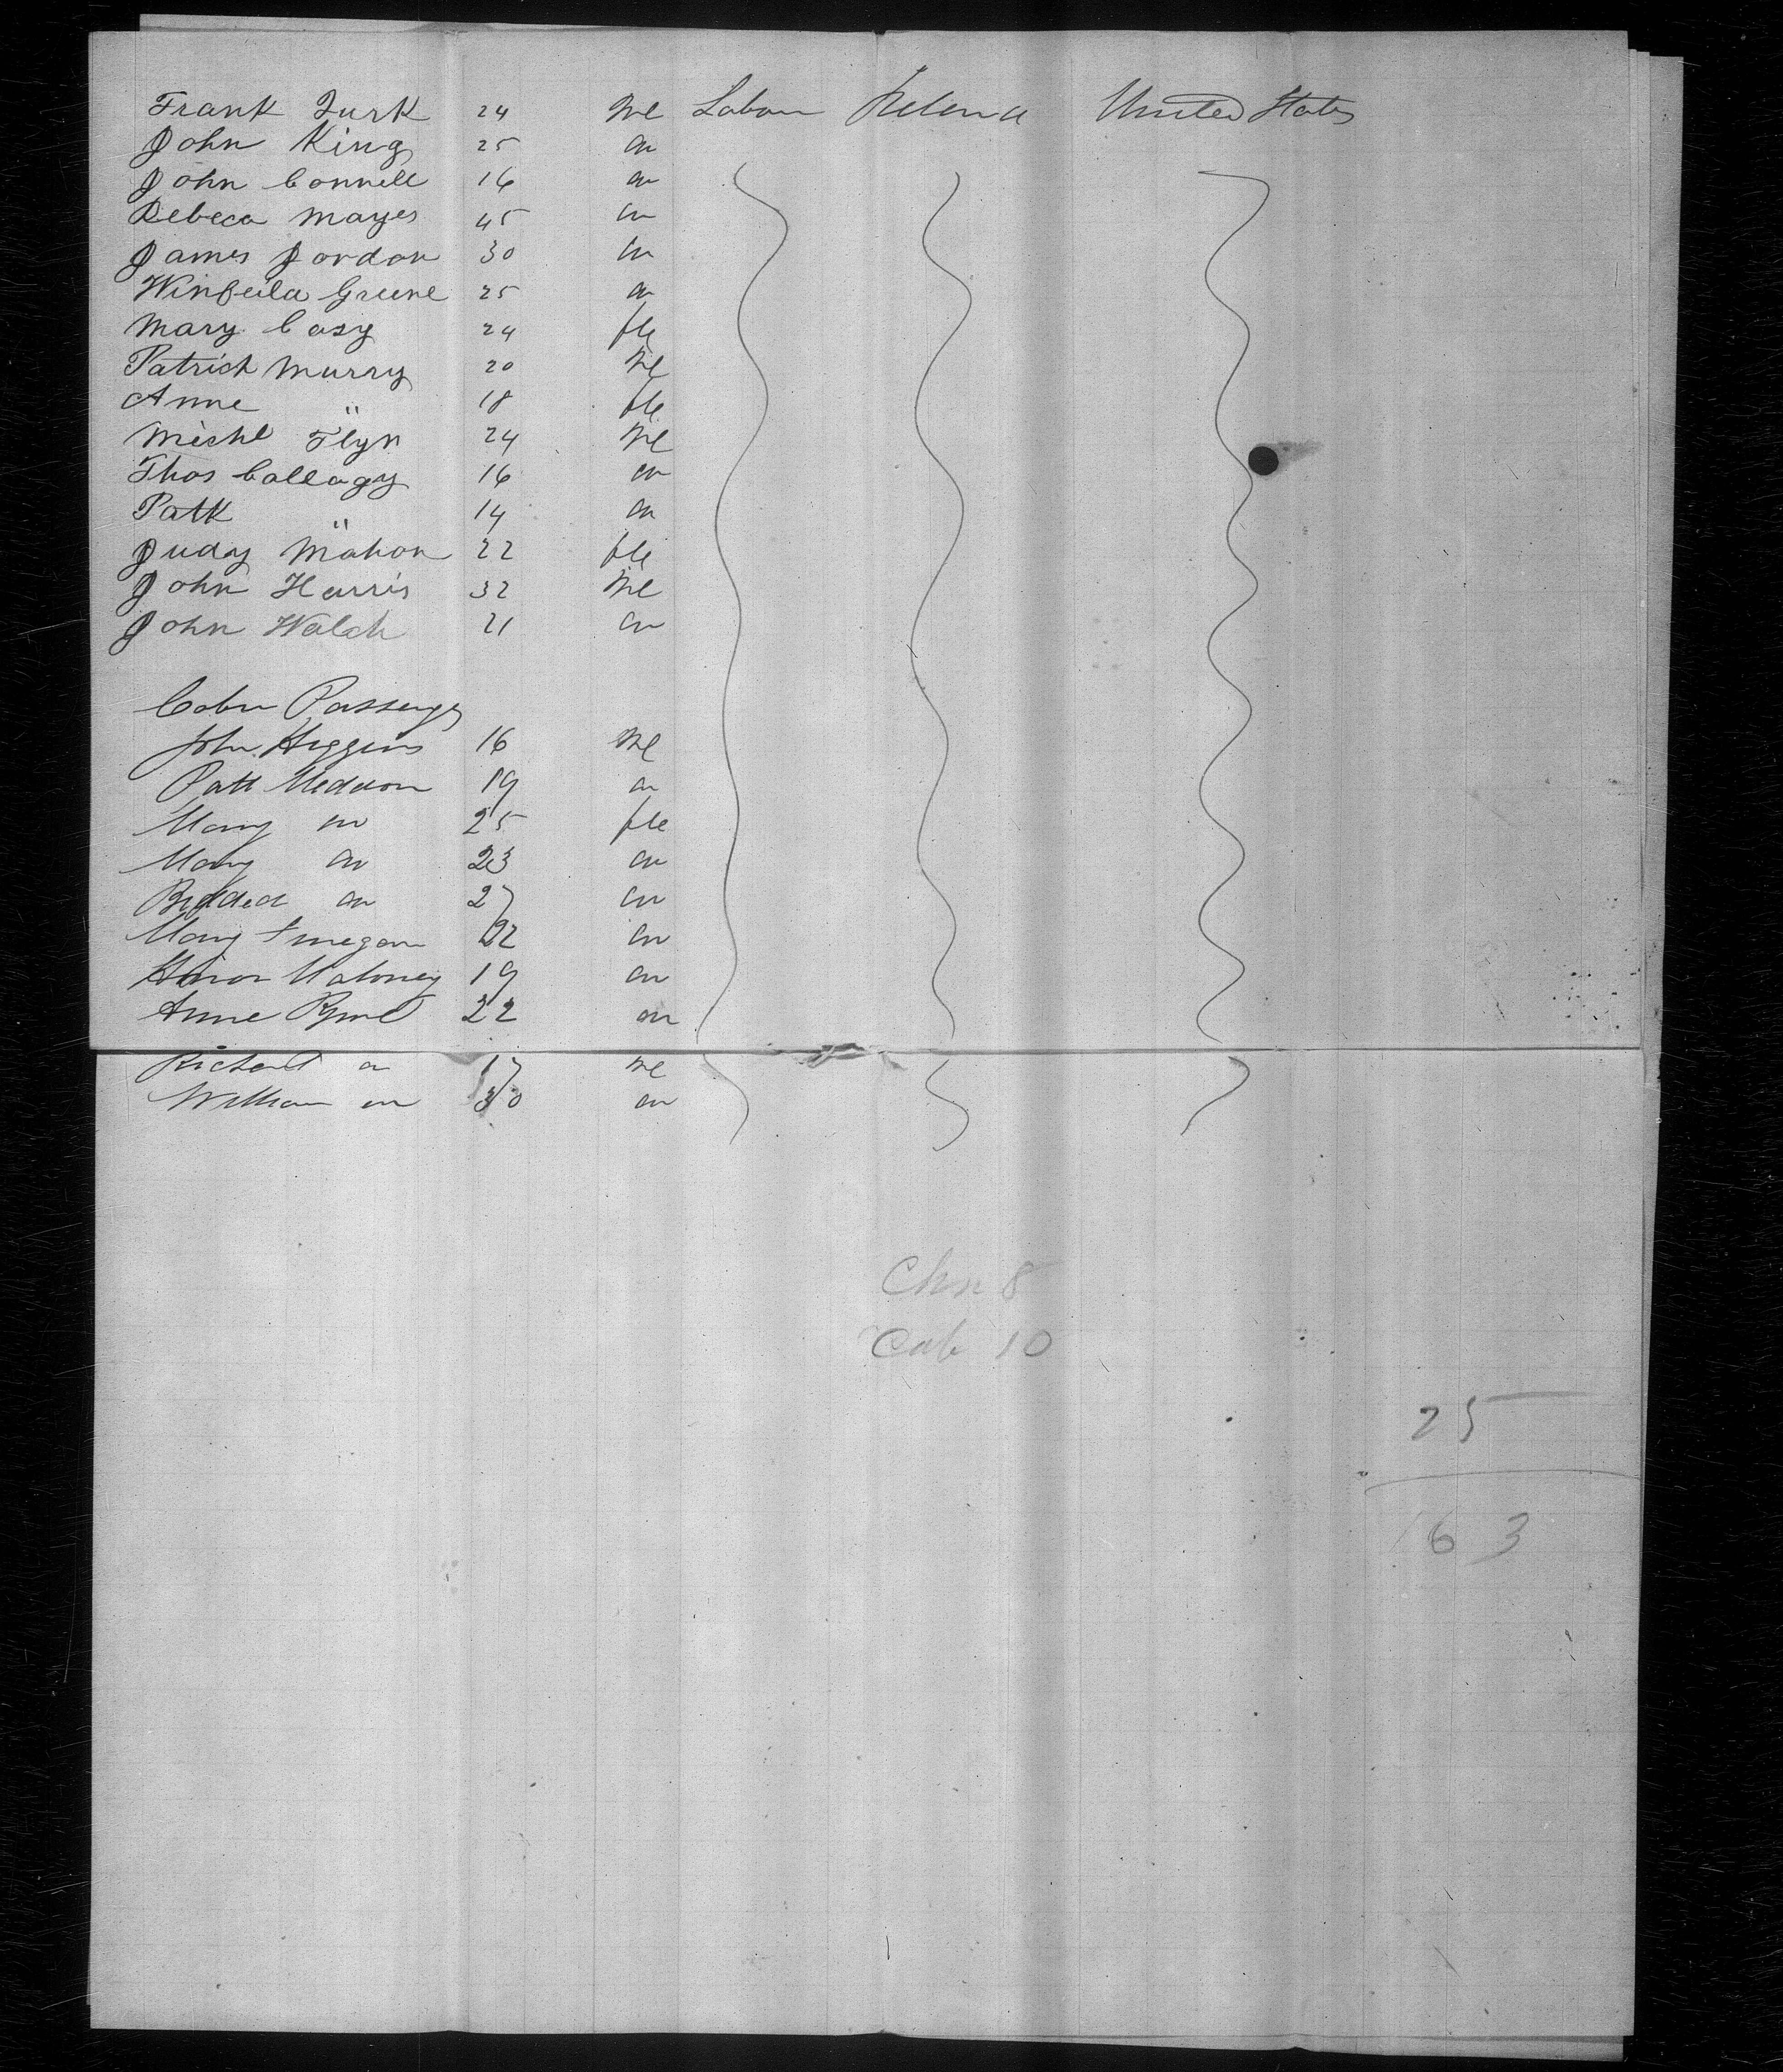 Frank Turk 24 Me Labour Ireland United States
John King 25 do
John Connell 16 do
Rebeca Mayes 45 do
James Jordon 30 do
Winfeila Greene 25 do
Mary Casy 24 fle
Patrick Murry 20 Me
Anne " 18 fle
Michl Flyn 24 Me
Thos Collagy 16 do
Patk " 14 do
Judy Mahon 22 fle
John Harris 32 Me
John Walsh 21 do
Cabin Passengers
John Higgins 16 Me
Patt 19 do
Mary do 25 fle
Mary do 23 do
do 27 do
Mary Finegan 22 do
Honor Maloney 19 do
Anne Byrne 22 do
Richard do 17 Me
William do 30 do
Chn 8
Cab 10
25
163